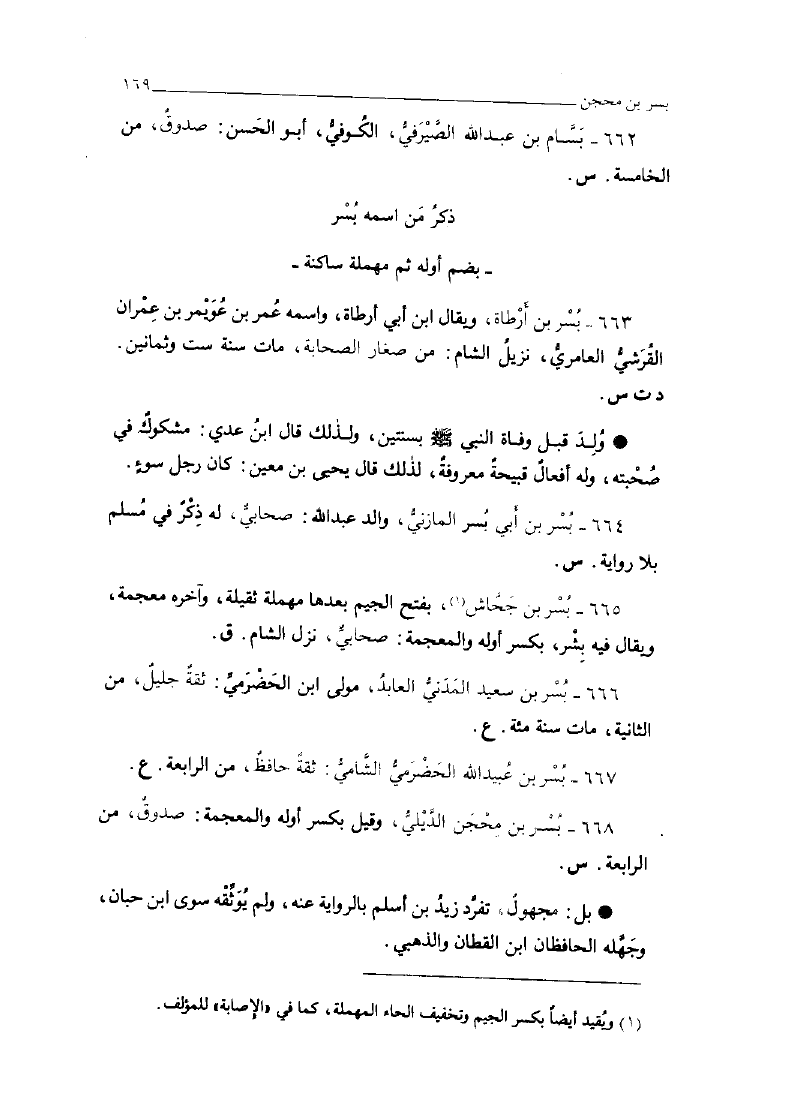 بسر بن محجن ــــــ ١٦٩
٦٦٢ ـ بَسَّام بن عبدالله الصَّيْرَفيُّ، الكُوفيُّ، أبو الحَسن: صدوقٌ، من
الخامسة. س.
ذكرُ مَن اسمه بُسْر
ـ بضم أوله ثم مهملة ساكنة ـ
٦٦٣ ـ بُسْر بن أَرْطاة، ويقال ابن أبي أرطاة، واسمه عُمر بن عُوَيْمر بن عِمْران
القُرَشيُّ العامريُّ، نزيلُ الشام: من صغار الصحابة، مات سنة ست وثمانين.
د ت س.
● وُلِدَ قبل وفاة النبي ﷺ بسنتين، ولذلك قال ابنُ عدي: مشكوكٌ في
صُحْبته، وله أفعالٌ قبيحةٌ معروفةٌ، لذلك قال يحيى بن معين: كان رجل سوءٍ.
٦٦٤ ـ بُسْر بن أَبي بُسر المازنيُّ، والد عبدالله: صحابيٌّ، له ذِكْرٌ في مُسلم
بلا رواية. س.
٦٦٥ ـ بُسْر بن جَحَّاش(١)، بفتح الجيم بعدها مهملة ثقيلة، وآخره معجمة،
ويقال فيه بِشْر، بكسر أوله والمعجمة: صحابيٌّ، نزل الشام. ق.
٦٦٦ ـ بُسْر بن سعيد المَدَنيُّ العابدُ، مولى ابن الحَضْرَميِّ: ثقةٌ جليلٌ، من
الثانية، مات سنة مئة. ع.
٦٦٧ ـ بُسْر بن عُبيدالله الحَضْرميُّ الشَّاميُّ: ثقةٌ حافظٌ، من الرابعة. ع.
٦٦٨ ـ بُسْر بن مِحْجَن الدِّيْليُّ، وقيل بكسر أوله والمعجمة: صدوقٌ، من
الرابعة. س.
● بل: مجهولٌ، تفرَّد زيدُ بن أسلم بالرواية عنه، ولم يُوَثِّقْه سوى ابن حبان،
وجَهَّله الحافظان ابن القطان والذهبي.
(١) ويُقيد أيضاً بكسر الجيم وتخفيف الحاء المهملة، كما في «الإصابة» للمؤلف.